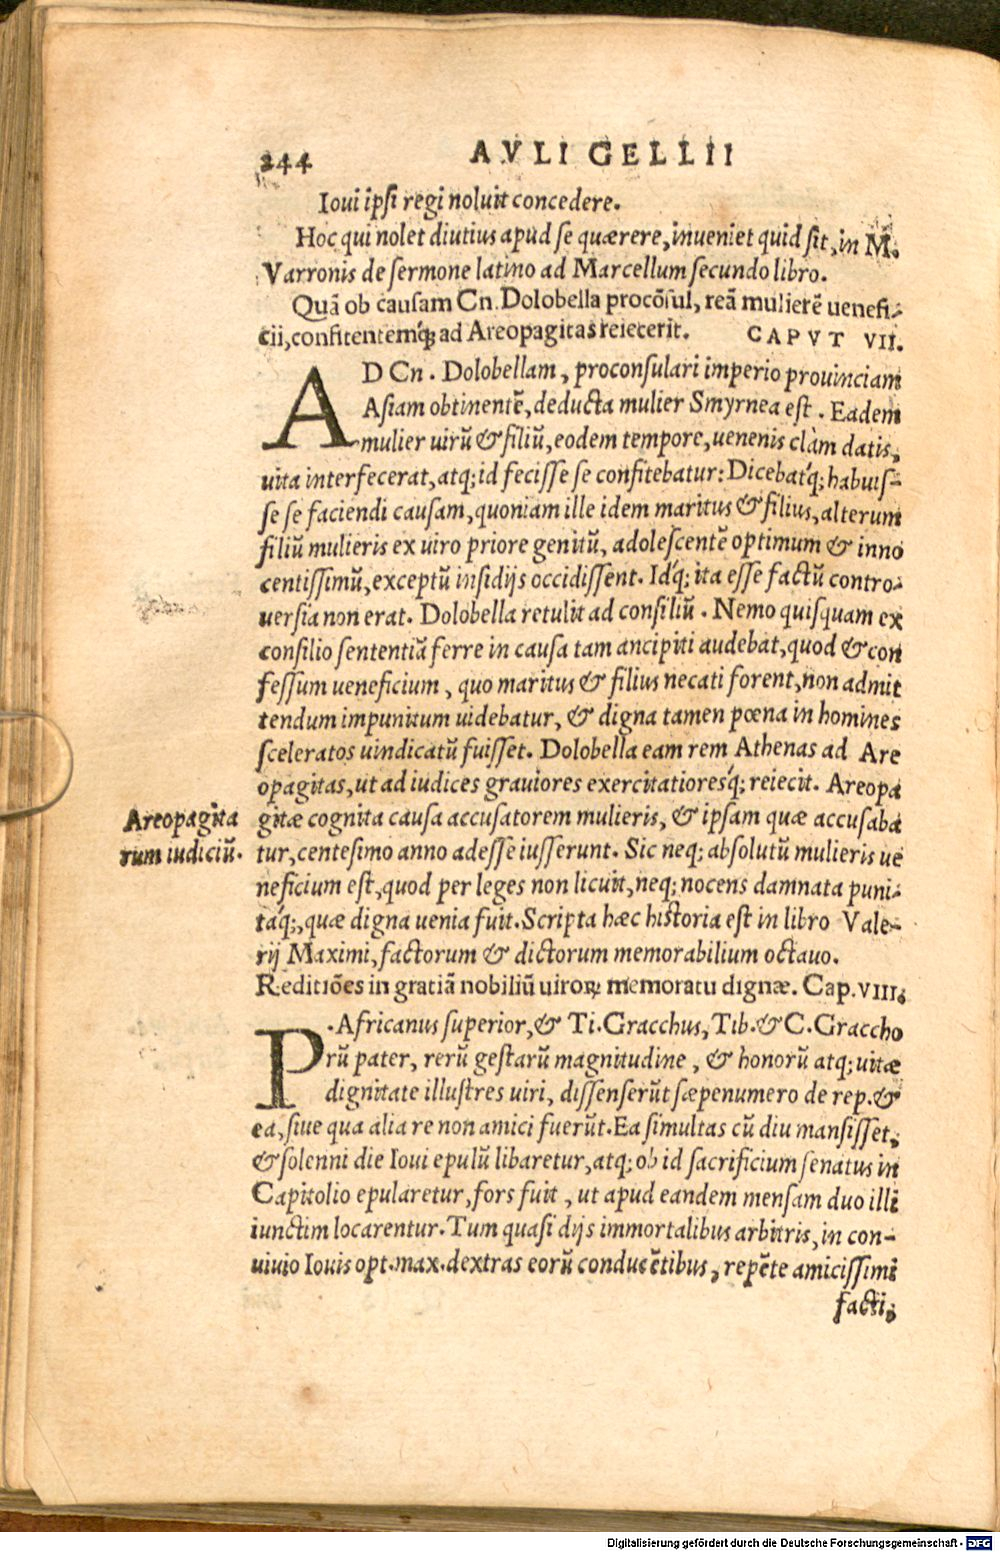 244 AVLI GELLII
Ioui ipsi regi noluit concedere.
Hoc qui nolet diutius apud se quærere, inueniet quid sit, in M.
Varronis de sermone latino ad Marcellum secundo libro.
Quā ob causam Cn. Dolobella procōsul, reā mulierē uenefi-
cii, confitentemq́; ad Areopagitas reiecerit. CAPVT VII.
AD Cn. Dolobellam, proconsulari imperio prouinciam
Asiam obtinentē, deducta mulier Smyrnea est. Eadem
mulier uirū & filiū, eodem tempore, uenenis clàm datis,
uita interfecerat, atq; id fecisse se confitebatur: Dicebatq́; habuis-
se se faciendi causam, quoniam ille idem maritus & filius, alterum
filiū mulieris ex uiro priore genitū, adolescentē optimum & inno
centissimū, exceptū insidijs occidissent. Idq́; ita esse factū contro-
uersia non erat. Dolobella retulit ad consiliū. Nemo quisquam ex
consilio sententiā ferre in causa tam ancipiti audebat, quod & con
fessum ueneficium, quo maritus & filius necati forent, non admit
tendum impunitum uidebatur, & digna tamen pœna in homines
sceleratos uindicatū fuisset. Dolobella eam rem Athenas ad Are
opagitas, ut ad iudices grauiores exercitatioresq́; reiecit. Areopa
Areopagita
rum iudiciū.
gitæ cognita causa accusatorem mulieris, & ipsam quæ accusaba
tur, centesimo anno adesse iusserunt. Sic neq; absolutū mulieris ue
neficium est, quod per leges non licuit, neq; nocens damnata puni-
taq́;, quæ digna uenia fuit. Scripta hæc historia est in libro Vale-
rij Maximi, factorum & dictorum memorabilium octauo.
Reditiōes in gratiā nobiliū uiroꝝ memoratu dignæ. Cap. VIII.
P. Africanus superior, & Ti. Gracchus, Tib. & C. Graccho
rū pater, rerū gestarū magnitudine, & honorū atq; uitæ
dignitate illustres uiri, dissenserūt sæpenumero de rep. &
ea, siue qua alia re non amici fuerūt. Ea simultas cū diu mansisset,
& solenni die Ioui epulū libaretur, atq; ob id sacrificium senatus in
Capitolio epularetur, fors fuit, ut apud eandem mensam duo illi
iunctim locarentur. Tum quasi dijs immortalibus arbitris, in con-
uiuio Iouis opt. max. dextras eorū conducētibus, repēte amicissimi
facti,
Digitalisierung gefördert durch die Deutsche Forschungsgemeinschaft - DFG